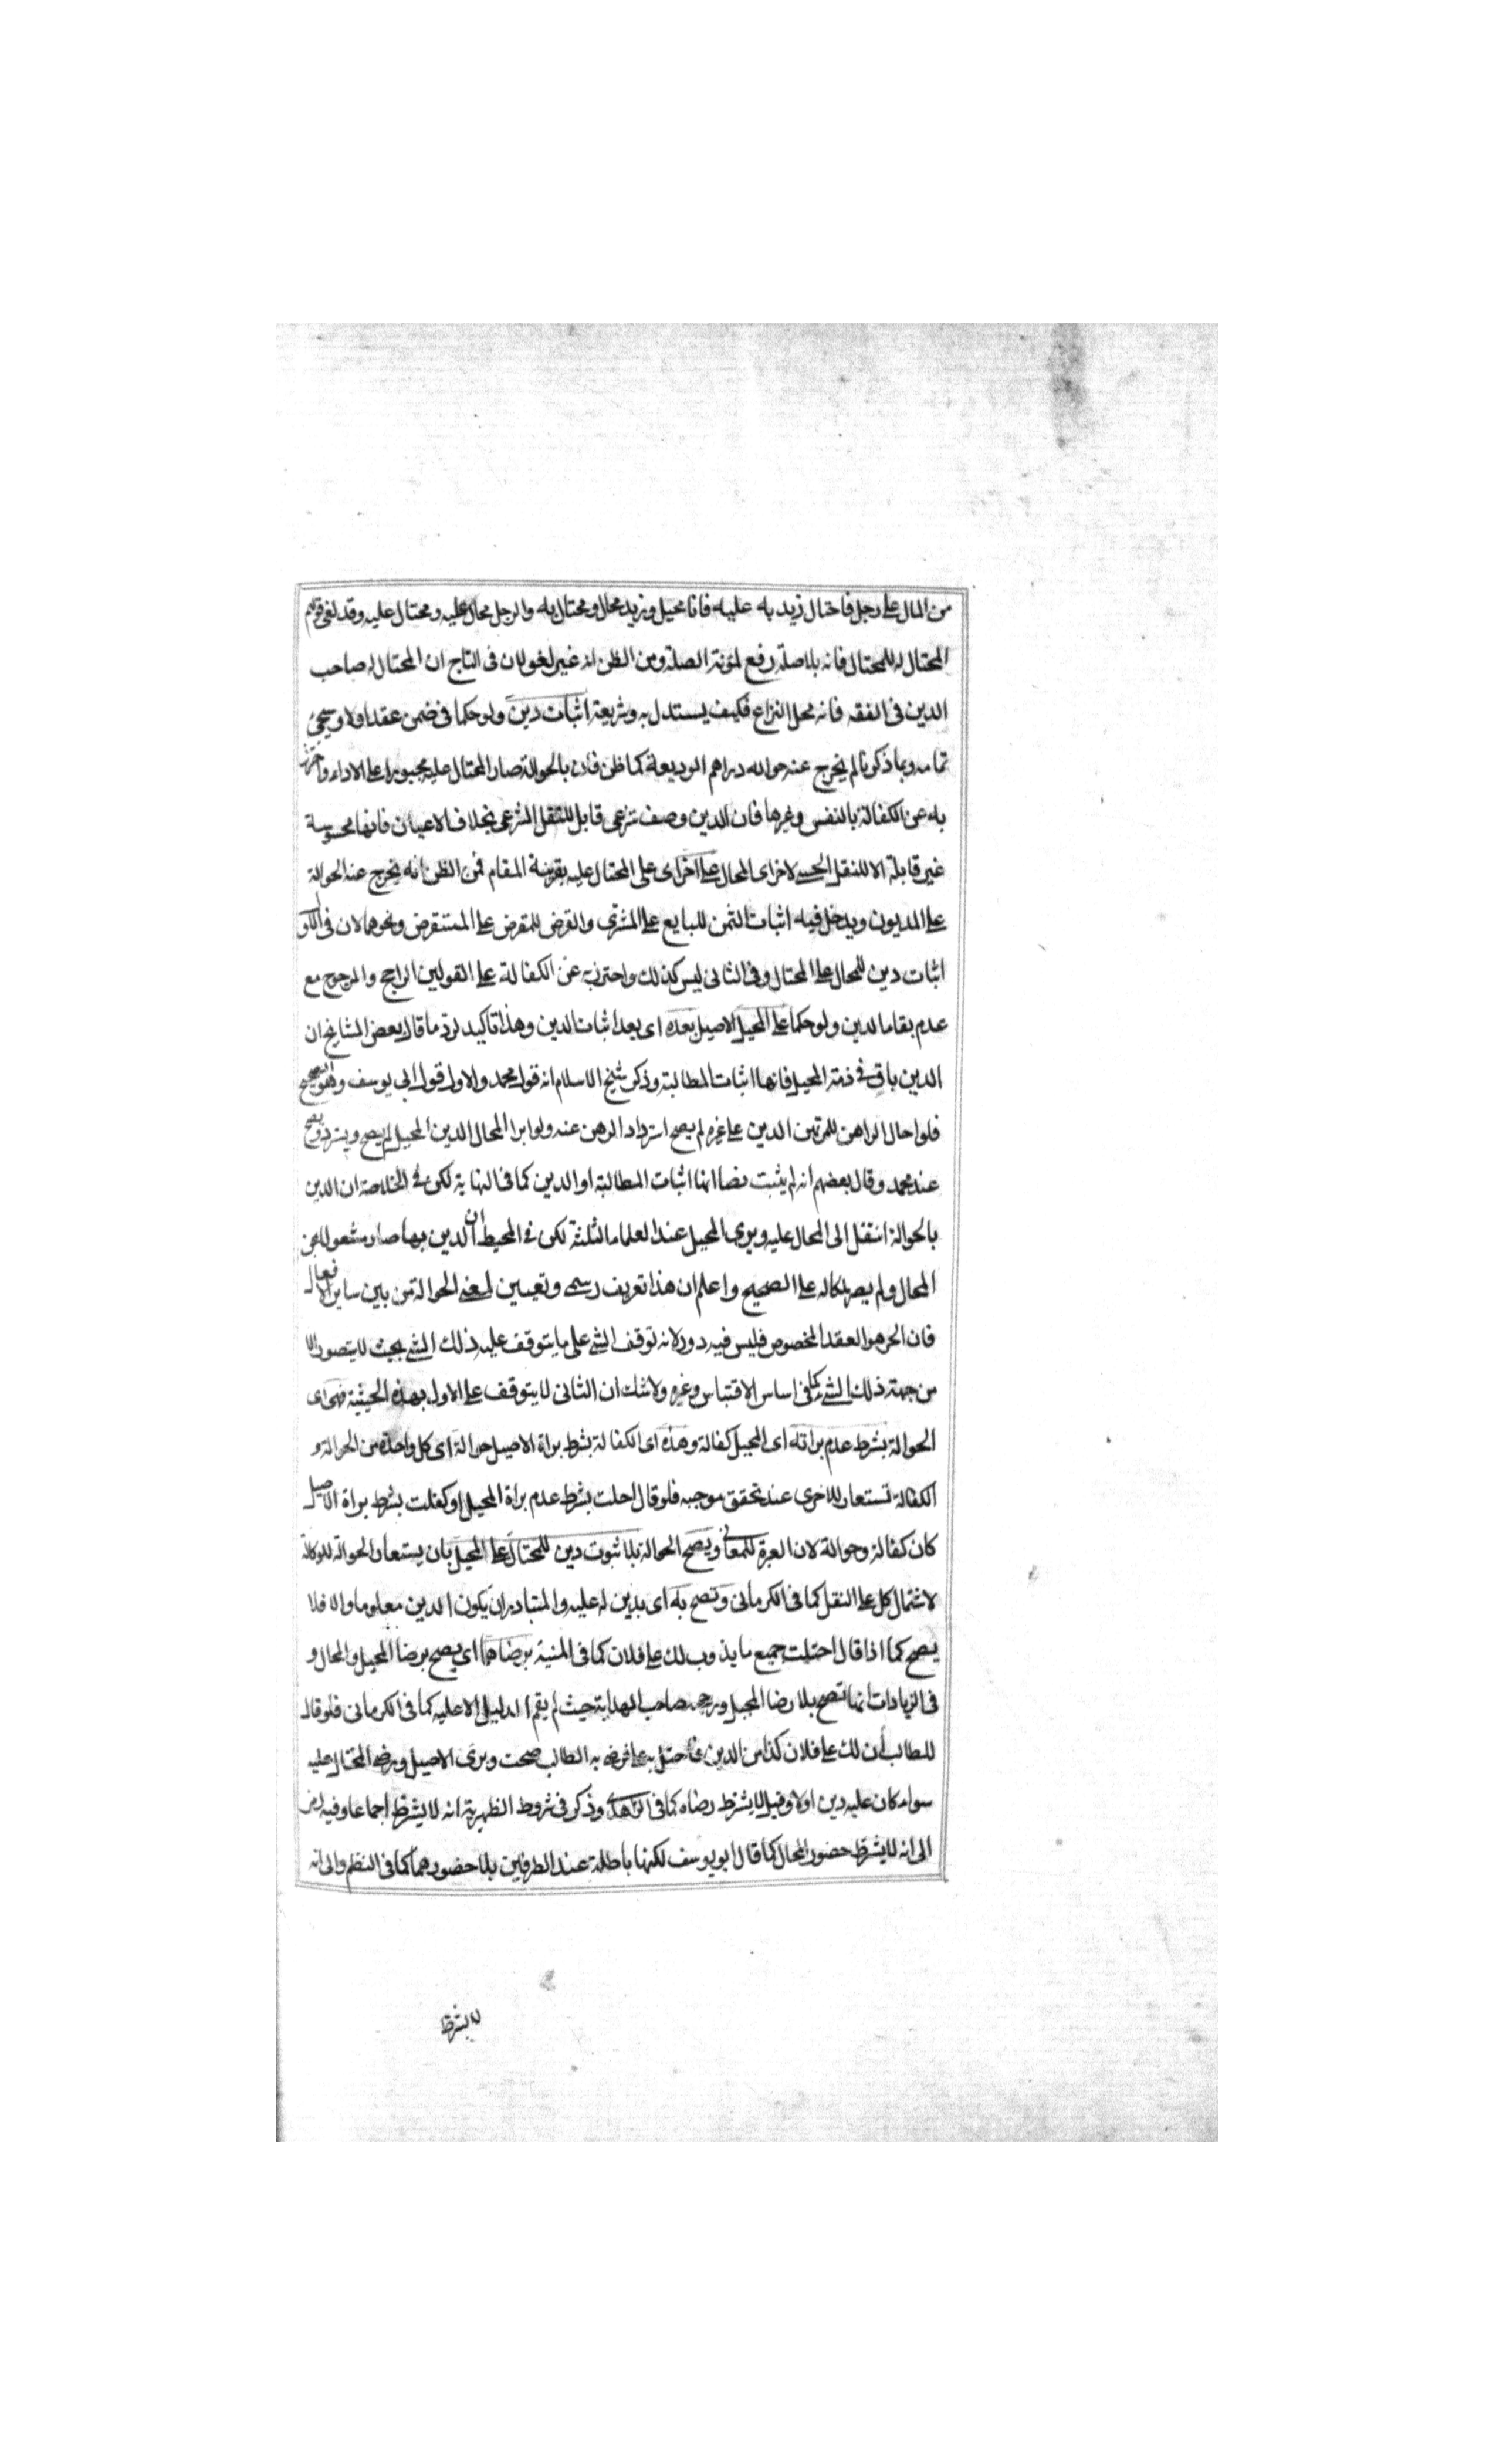 من المال على رجل فاحتال زيد به عليه فانا محيل وزيد محال ومحتال به والرجل محال عليه ومحتال عليه وقد لغى قولهم
المحتال له للمحتال فانه بلا صلة رفع لمؤنة الصلة ومن الظن انه غير لغو لان فى التاج ان المحتال له صاحب
الدين فى الفقه فانه محل النزاع فكيف يستدل به وشريعة اثبات دين ولو حكما فى ضمن عقد اولا وسيجئ
تمامه وبما ذكرنا لم يخرج عنه حوالة دراهم الوديعة كما ظن فان بالحوالة صار المحتال عليه مجبورا على الاداء واحترز
به عن الكفالة بالنفس وغيرها فان الدين وصف شرعى قابل للنقل الشرعى بخلاف الاعيان فانها محسوسة
غير قابلة الا للنقل الحسى لاخر اى المحال على اخر اى على المحتال عليه بقرينة المقام فمن الظن انه يخرج عنه الحوالة
على المديون ويدخل فيه اثبات الثمن للبايع على المشترى والقرض للمقرض على المستقرض ونحوهما لان فى الاول
اثبات دين للمحال على المحتال وفى الثانى ليس كذلك واحترز به عن الكفالة على القولين الراجح والمرجوح مع
عدم بقاء الدين ولو حكما على المحيل الاصيل بعده اى بعد اثبات الدين وهذا تأكيد لرد ما قال بعض المشايخ ان
الدين باق فى ذمة المحيل فانها اثبات المطالبة وذكر شيخ الاسلام انه قول محمد والاول قول ابى يوسف وهو الصحيح
فلو احال الراهن للمرتهن الدين على غيره لم يصح استرداد الرهن عنه ولو ابرا المحال الدين المحيل لم يصح ويسترد ويصح
عند محمد وقال بعضهم انه لم يثبت نصا انها اثبات المطالبة او الدين كما فى النهاية لكن فى الخلاصة ان الدين
بالحوالة انتقل الى المحال عليه وبرى المحيل عند العلماء الثلثة لكن فى المحيط ان الدين بها صار مشغولا بحق
المحال ولم يصر ملكا له على الصحيح واعلم ان هذا تعريف رسمى وتعيين لمعنى الحوالة من بين ساير الافعال
فان الحر هو العقد المخصوص فليس فيه دور لانه توقف الشئ على ما يتوقف عليه ذلك الشئ بحيث لا يتصور الا
من جهة ذلك الشئ كما فى اساس الاقتباس وغيره ولا شك ان الثانى لا يتوقف على الاول بهذه الحيثية فهى اى
الحوالة بشرط عدم براته اى المحيل كفالة وهذه اى الكفالة بشرط براة الاصيل حوالة اى كل واحدة من الحوالة و
الكفالة تستعار للاخرى عند تحقق موجبه فلو قال احلت بشرط عدم براة المحيل او كفلت بشرط براة الاصيل
كان كفالة وحوالة لان العبرة للمعانى ويصح الحوالة بلا ثبوت دين للمحتال على المحيل بان يستعار الحوالة للوكالة
لاشتمال كل على النقل كما فى الكرمانى وتصح به اى بدين له عليه والمتبادر ان يكون الدين معلوما والا فلا
يصح كما اذا قال احتلت جميع ما يذوب لك على فلان كما فى المنية برضاهما اى يصح برضا المحيل والمحال و
فى الزيادات انها تصح بلا رضا المحيل ورجحه صاحب الهداية حيث لم يقم الدليل الا عليه كما فى الكرمانى فلو قال
للطالب ان لك على فلان كذا من الدين فاحتل به على فرضى به الطالب صحت وبرى الاصيل ورضى المحتال عليه
سواء كان عليه دين اولا وقيل لا يشترط رضاه كما فى الزاهدى وذكر فى شروط الظهيرية انه لا يشترط اجماعا وفيه رمز
الى انه لا يشترط حضور المحال كما قال ابو يوسف لكنها باطلة عند الطرفين بلا حضورهما كما فى النظم والى انه
لا يشترط